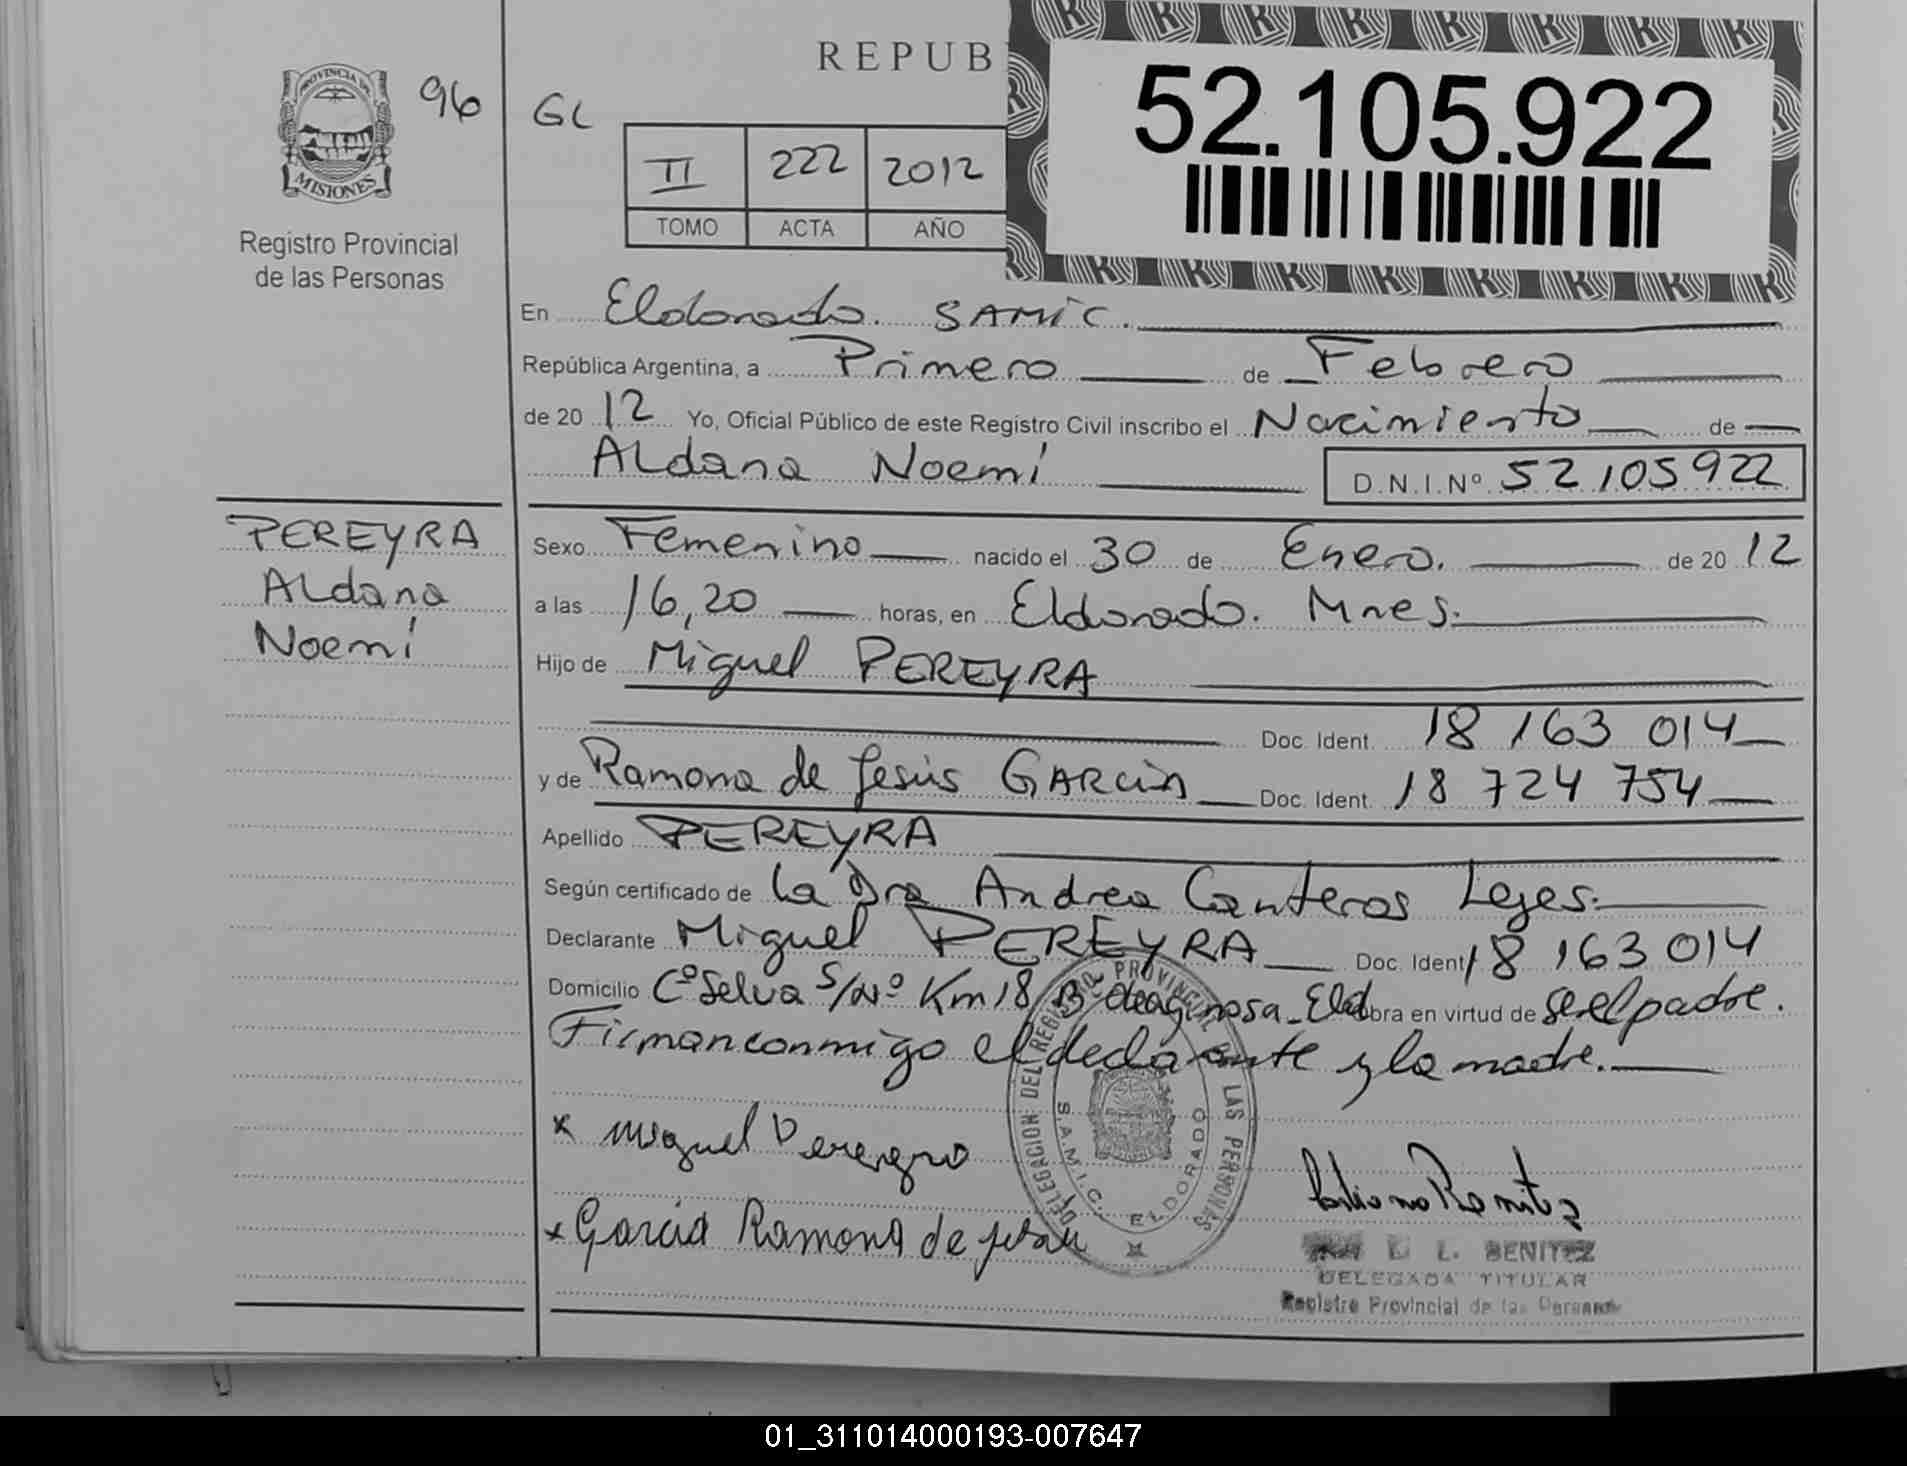 REPUB
52.105.922
PROVINCIA DE
MISIONES
96
GL
II 222 2012
TOMO ACTA AÑO
Registro Provincial
de las Personas
En Eldorado. SAMIC.
República Argentina, a Primero de Febrero
de 2012 Yo, Oficial Público de este Registro Civil inscribo el Nacimiento de
Aldana Noemí D.N.I.Nº 52 105 922
PEREYRA
Aldana
Noemí
Sexo Femenino nacido el 30 de Enero. de 2012
a las 16,20 horas, en Eldorado. Mnes.
Hijo de Miguel PEREYRA
Doc. Ident. 18 163 014
y de Ramona de Jesús GARCIA Doc. Ident. 18 724 754
Apellido PEREYRA
Según certificado de La Dra Andrea Canteros Leyes.
Declarante Miguel PEREYRA Doc. Ident 18 163 014
Domicilio Cº Selva S/Nº Km 18 Bº Eld obra en virtud de ser el padre.
Firman conmigo el declarante y la madre.
x Miguel Pereyra
x Garcia Ramona de Jesus
DELEGACION DEL REGISTRO PROVINCIAL DE LAS PERSONAS
S.A.M.I.C. ELDORADO
L. BENITEZ
DELEGADA TITULAR
Registro Provincial de las Personas
01_311014000193-007647